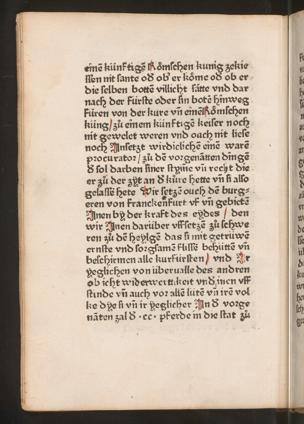 einē künftigē Römschen kunig zekie
ssen nit sante od ob er kōme od ob er
die selben bottē villicht sātte vnd dar
nach der Fürste oder sin botē hinweg
Füren von der kure vn̄ einē Römschen
küng / zu einem künftigē keiser noch
nit gewelet weren vnd ouch nit liese
noch Ansetzt wirdicliche einē ware
procurator / zu dē vorgenātten dingē
d sol darben siner stym̄e vn̄ recht die
er zu der zyt an d kure hette vn̄ si also
gelassē hete Wir setzē ouch dē burg-
eren von Franckenfurt vf vn̄ gebietē
Inen by der kraft des eydes / den
wir Inen darüber vff setzē zu schwe
ren zu dē heylgē das si mit getrüwē
ernste vnd sorgsamē flisse behüttē vn̄
beschirmen alle kurfürsten / vnd Ir
yeglichen von über valle des andren
ob icht widerwertikeit vnd inen vff
stünde vn̄ auch vor allē lütē vn̄ irē vol
ke dye si vn̄ ir yeglicher In d vorge
nāten zal d · cc · pferde in die stat zu